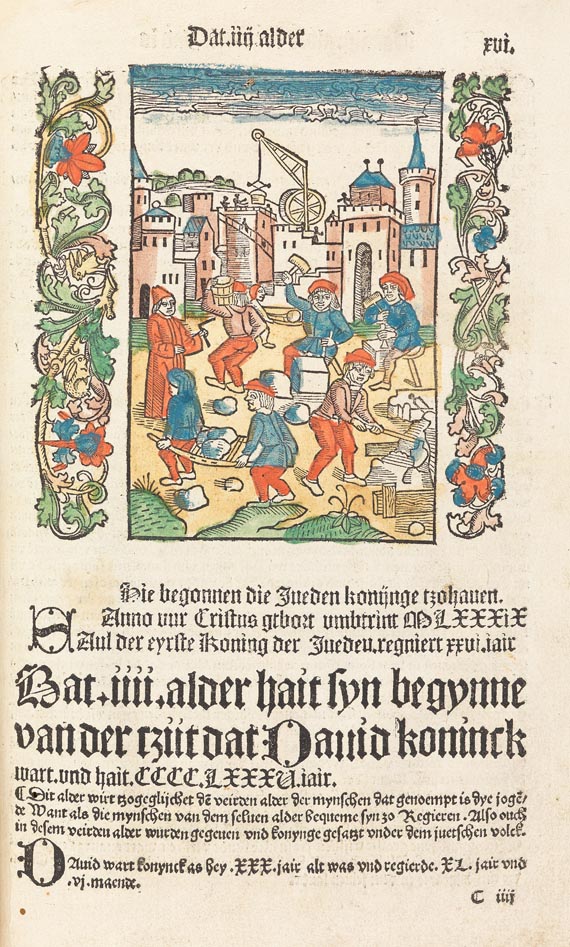 Dat .iiij alder
xvi.
Hie begonnen die Jueden konijnge tzohauen.
Anno vur Cristus gebort vmbtrint MLXXXIX
SAul der eyrste Koning der Jueden. regniert xxvi. iair
Dat .iiii. alder hait syn begynne
van der tzijt dat Dauid koninck
wart. vnd hait. CCCC.LXXXV. iair.
¶ Dit alder wirt tzogeglijchet dē veirden alder der mynschen dat genoempt is dye jogē/
de Want als die mynschen van dem seluen alder bequeme syn zo Regieren. Also ouch
in desem veirden alder wurden gegeuen vnd konynge gesatzt vnder dem juetschen volck.
DAuid wart konynck as hey .XXX. jair alt was vnd regierde. XL. jair vnd
.vj. maende.
C iiij